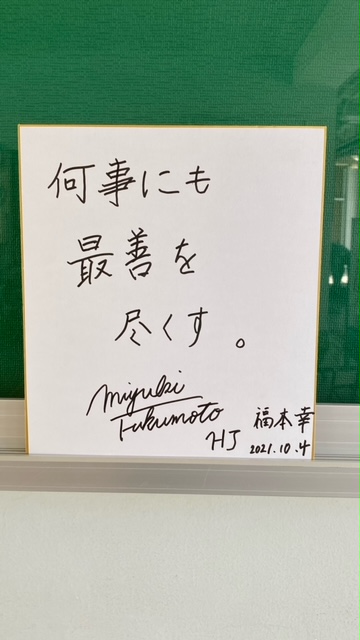 何事にも
最善を
尽くす。
Miyuki
Fukumoto
HJ
福本幸
2021.10.4